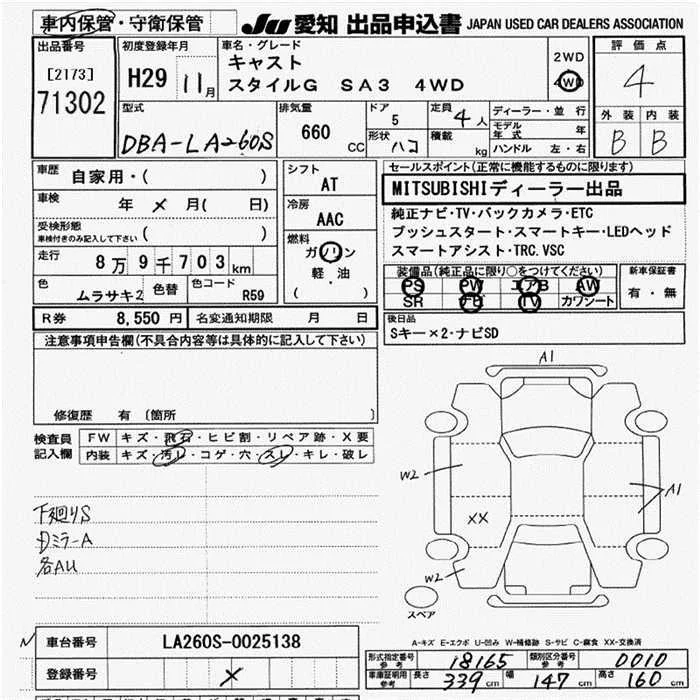 車内保管・守衛保管
JU 愛知 出品申込書 JAPAN USED CAR DEALERS ASSOCIATION
出品番号
[2173]
71302
初度登録年月
H29 11月
車名・グレード
キャスト
スタイルG SA3 4WD
2WD
4WD
評価点
4
外装 内装
B B
型式
DBA-LA260S
排気量
660 CC
ドア
5
形状 ハコ
定員 4人
積載 kg
ディーラー・並行
モデル年式 年
ハンドル 左・右
車歴
自家用・( )
車検 年 × 月( 日)
受検形態
車検付きのみ記入して下さい ( )
走行 8万9千703km
色 ムラサキ2
色替
色コード R59
シフト
AT
冷房
AAC
燃料
ガソリン
軽・油
( )
セールスポイント(正常に機能するものに限ります)
MITSUBISHIディーラー出品
純正ナビ・TV・バックカメラ・ETC
プッシュスタート・スマートキー・LEDヘッド
スマートアシスト・TRC.VSC
装備品(純正品に限り○をつけてください)
PS PW エアB AW
SR TV カワシート
新車保証書
有・無
R券 8,550円
名変通知期限 月 日
後日品
Sキー×2・ナビSD
注意事項申告欄(不具合内容等は具体的に記入して下さい)
修復歴 有 〔箇所 〕
検査員
記入欄
FW キズ・飛石・ヒビ割・リペア跡・X要
内装 キズ・汚レ・コゲ・穴・スレ・キレ・破レ
下廻りS
DミラーA
各AU
A1
W2
A1
XX
W2
スペア
A-キズ E-エクボ U-凹み W-補修跡 S-サビ C-腐食 XX-交換済
車台番号 LA260S-0025138
登録番号 ×
形式指定番号
参考
18165
類別区分番号
参考
0010
車庫証明用
参考
長さ 339cm 幅 147cm 高さ 160cm